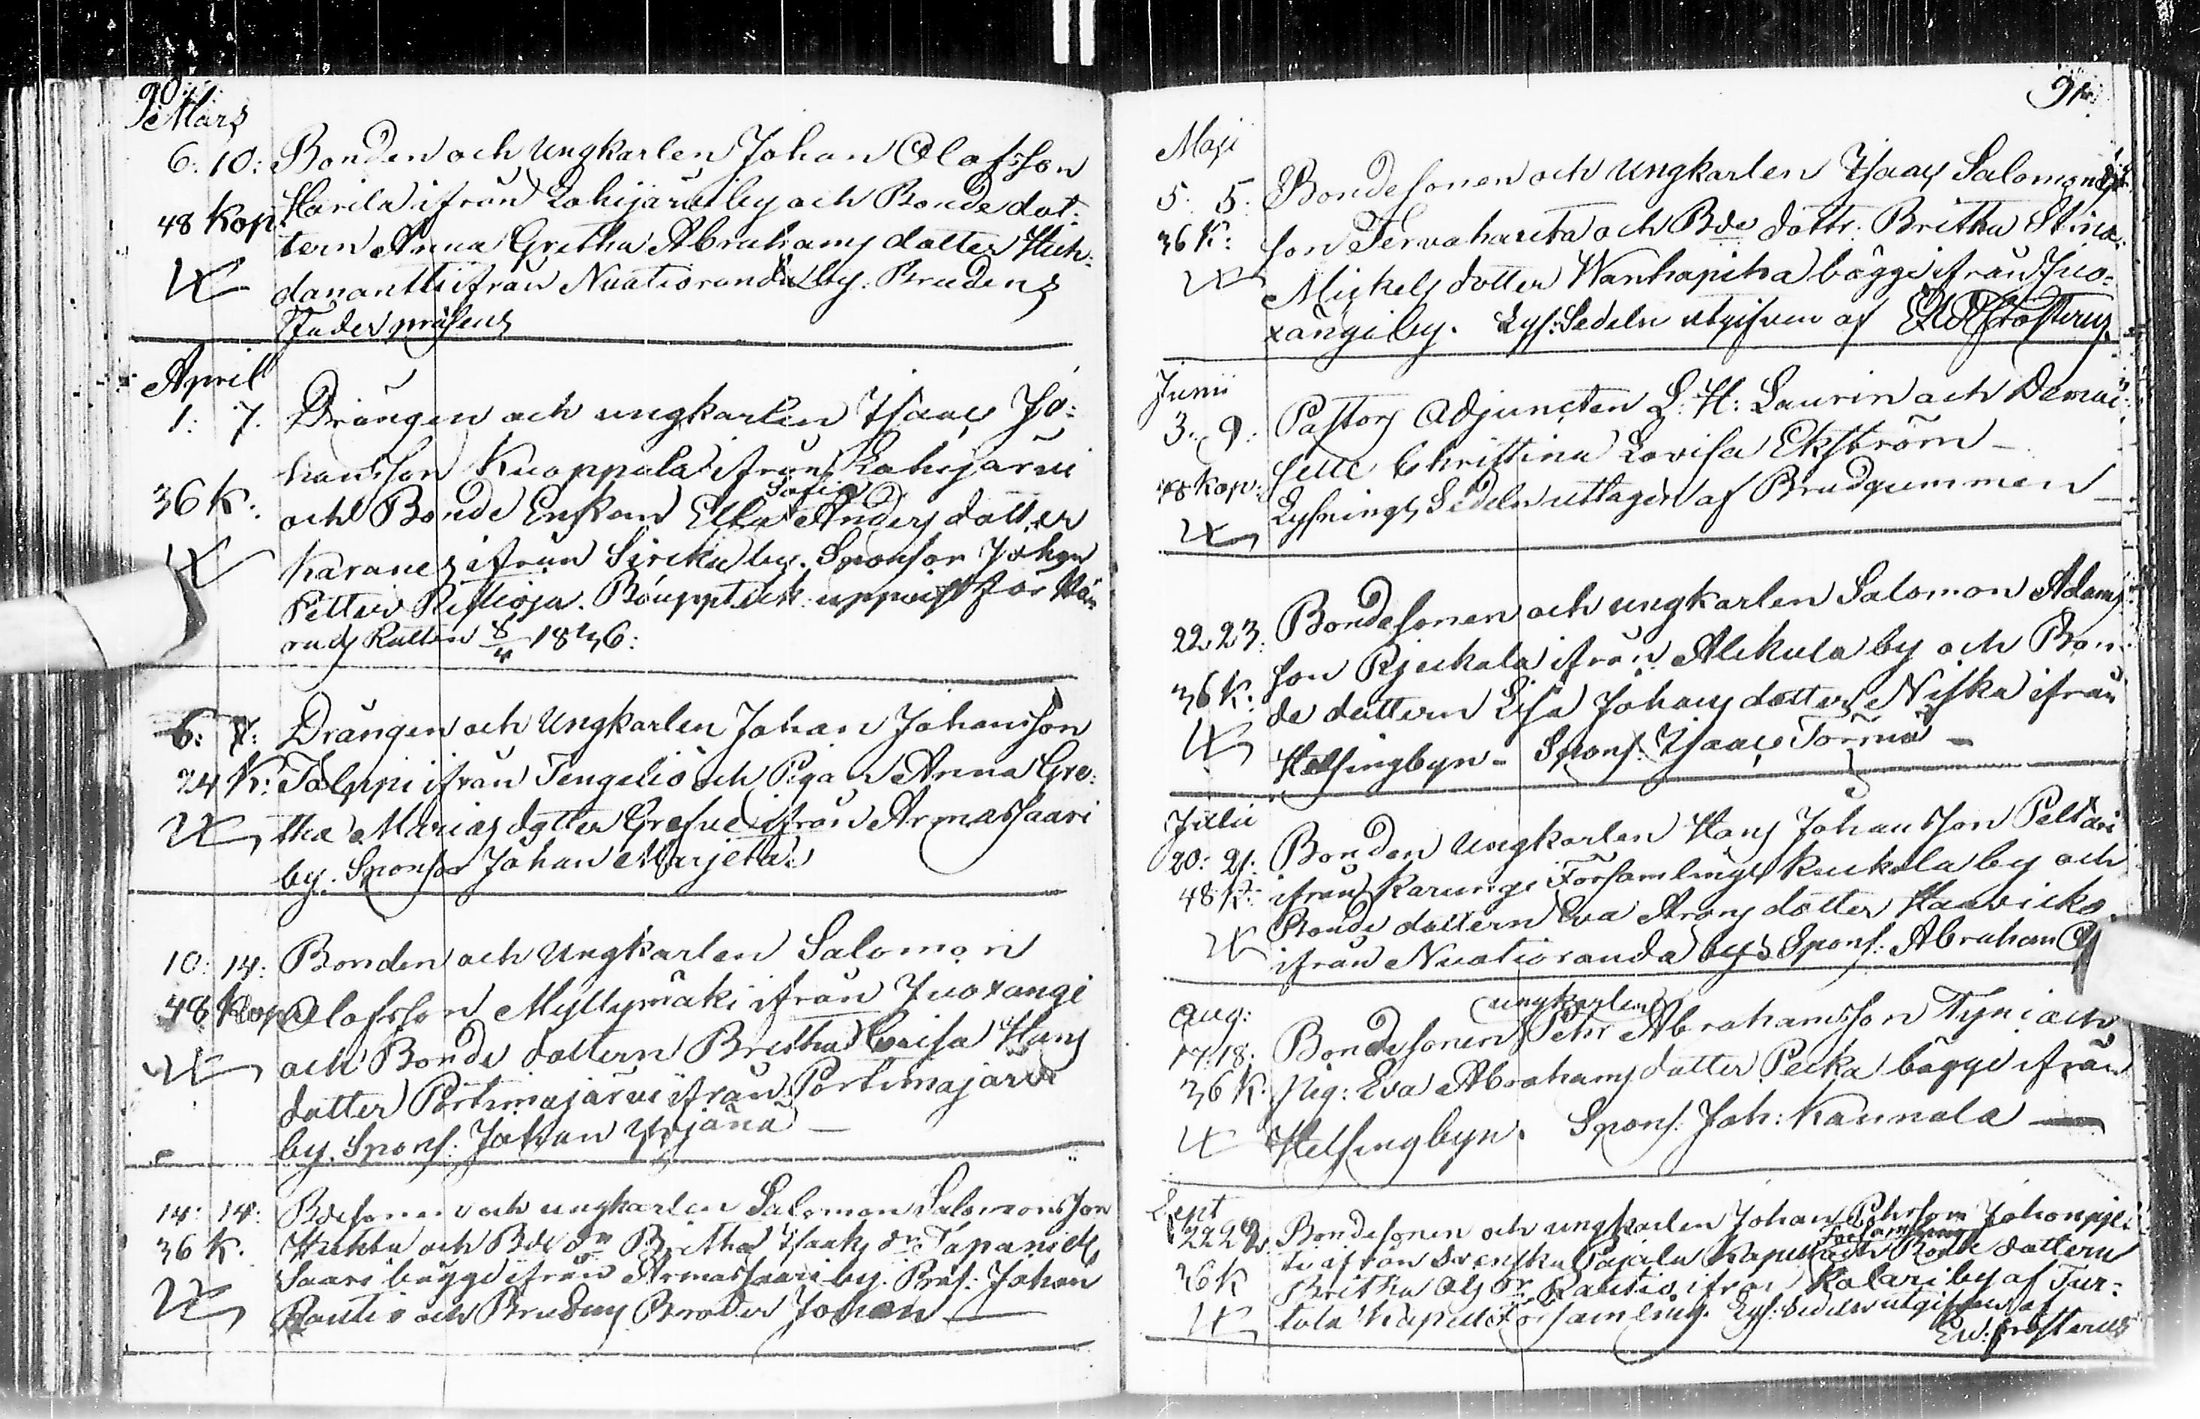 90.
Mars
6. 10: Bonden och Ungkarlen Johan Olofsson
Harila ifrån Lohijärvi by och Bonde dot-
48 Kop. tern Anna Gretha Abrahams dotter
ifrån Nuotioranda by. Brudens
Fader præsens
April
1: 7. Drängen och ungkarlen Isaac Jo-
hansson Kuoppala ifrån Lohijärvi
36 K: och Bonde Enkan Ella Sofia Anders dotter
Karanes ifrån Sirkka by. Sponsor Johan
Petter. uppvist för Hä-
rads Rätten 8/4 1836:
6: 7: Drängen och Ungkarlen Johan Johansson
24 K: Talppi ifrån Tengeliö och Pigan Anna Gre-
tha Marias dotter ifrån Armassaari
by. Sponsor Johan Marjeta.
10: 14: Bonden och Ungkarlen Salomon
48 Kop. Olofsson Myllymäki ifrån Juoxangi
och Bonde dottern Britha Caisa Hans
dotter Portimojärvi ifrån Portimojärvi
by. Spons: Johan Yrjänä –
14: 14: Bdesonen och ungkarlen Salomon Salomonsson
36 K. Huhta och Bde dr Britha Isaaks dr Tapanis
Saari bägge ifrån Armassaari by. Johan
Rautio och Brudens Broder Johan –
91.
Maji
5. 5. Bondesonen och Ungkarlen Isaac Salomons
36 K: son Tervaharita och Bde dottr. Britha Stina
Mickels dotter Wanhapiha bägge ifrån Juo-
xangi by. Lys: Sedeln utgifven af Frosterus
Junii
3. 9. Pastors Adjuncten L. H: Laurin och Demoi-
selle Christina Lovisa Ekström –
48 Kop: Lysnings Sedeln uttagen af Brudgummen –
22. 23. Bondesonen och ungkarlen Salomon Adams
son Rjeckala ifrån Alckula by och Bon-
36 K: de dottern Lisa Johans dotter Niska ifrån
Helsingbyn – Spons: Isaac Törmä –
Julii
20: 21: Bonden Ungkarlen Hans Johansson
48 K: ifrån Karungi Församlings Kuckola by och
Bonde dottern Eva Arons dotter
ifrån Nuotioranda by. Spons: Abraham
Aug:
ungkarlen
17. 18: Bondesonen Pehr Abrahamsson Tyni och
36 K. Pig: Eva Abrahams dotter Pecka bägge ifrån
Helsingbyn. Spons: Joh: Kannala –
Sept
22 22 Bondesonen och ungkarlen Johan Pehrsson
ifrån Svenska Pajala Kapell Församling och Bonde dottern
36 K Britha Ols dr Rautio ifrån Kolari by af Tur-
tola Kapell Församling. Lys: Sedeln utgifven af
Ew: Frosterus